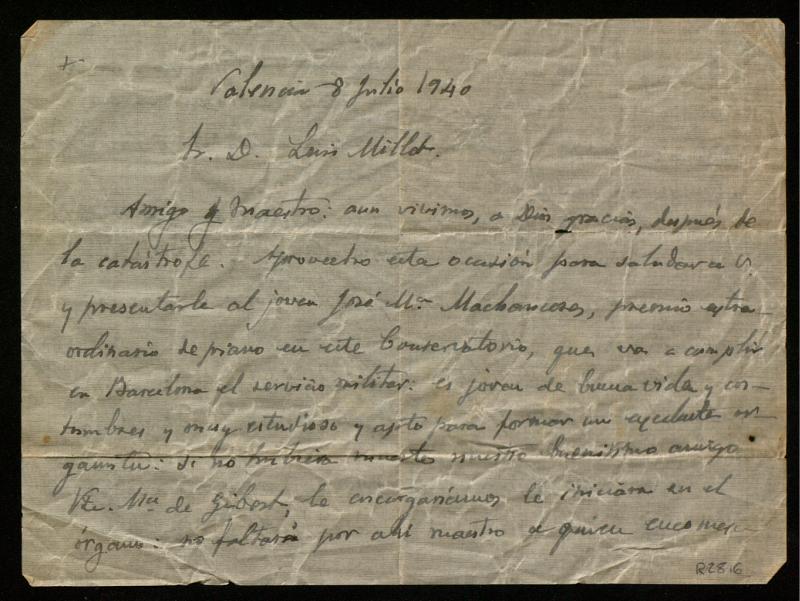 Valencia 8 Julio 1940
Sr. D. Luis Millet.
Amigo y Maestro: aun vivimos, a Dios gracias, después de
la catástrofe. Aprovecho esta ocasión para saludar a V.
y presentarle al joven José Mª Machancoses, premio extra-
ordinario de piano en este Conservatorio, que va a cumplir
en Barcelona el servicio militar: es joven de buena vida y cos-
tumbres y muy estudioso y apto para formar un excelente or-
ganista: si no hubiera muerto nuestro buenísimo amigo
Vte. Mª de Gibert, le encargaríamos le iniciara en el
órgano: no faltará por ahí maestro a quien encomen-
R2816